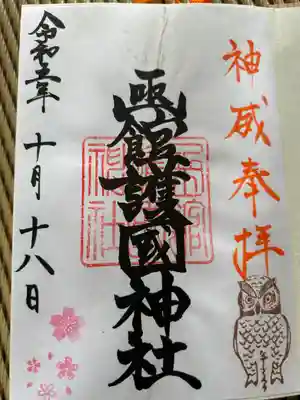 神威奉拝
凾館護國神社
令和五年 十月十八日